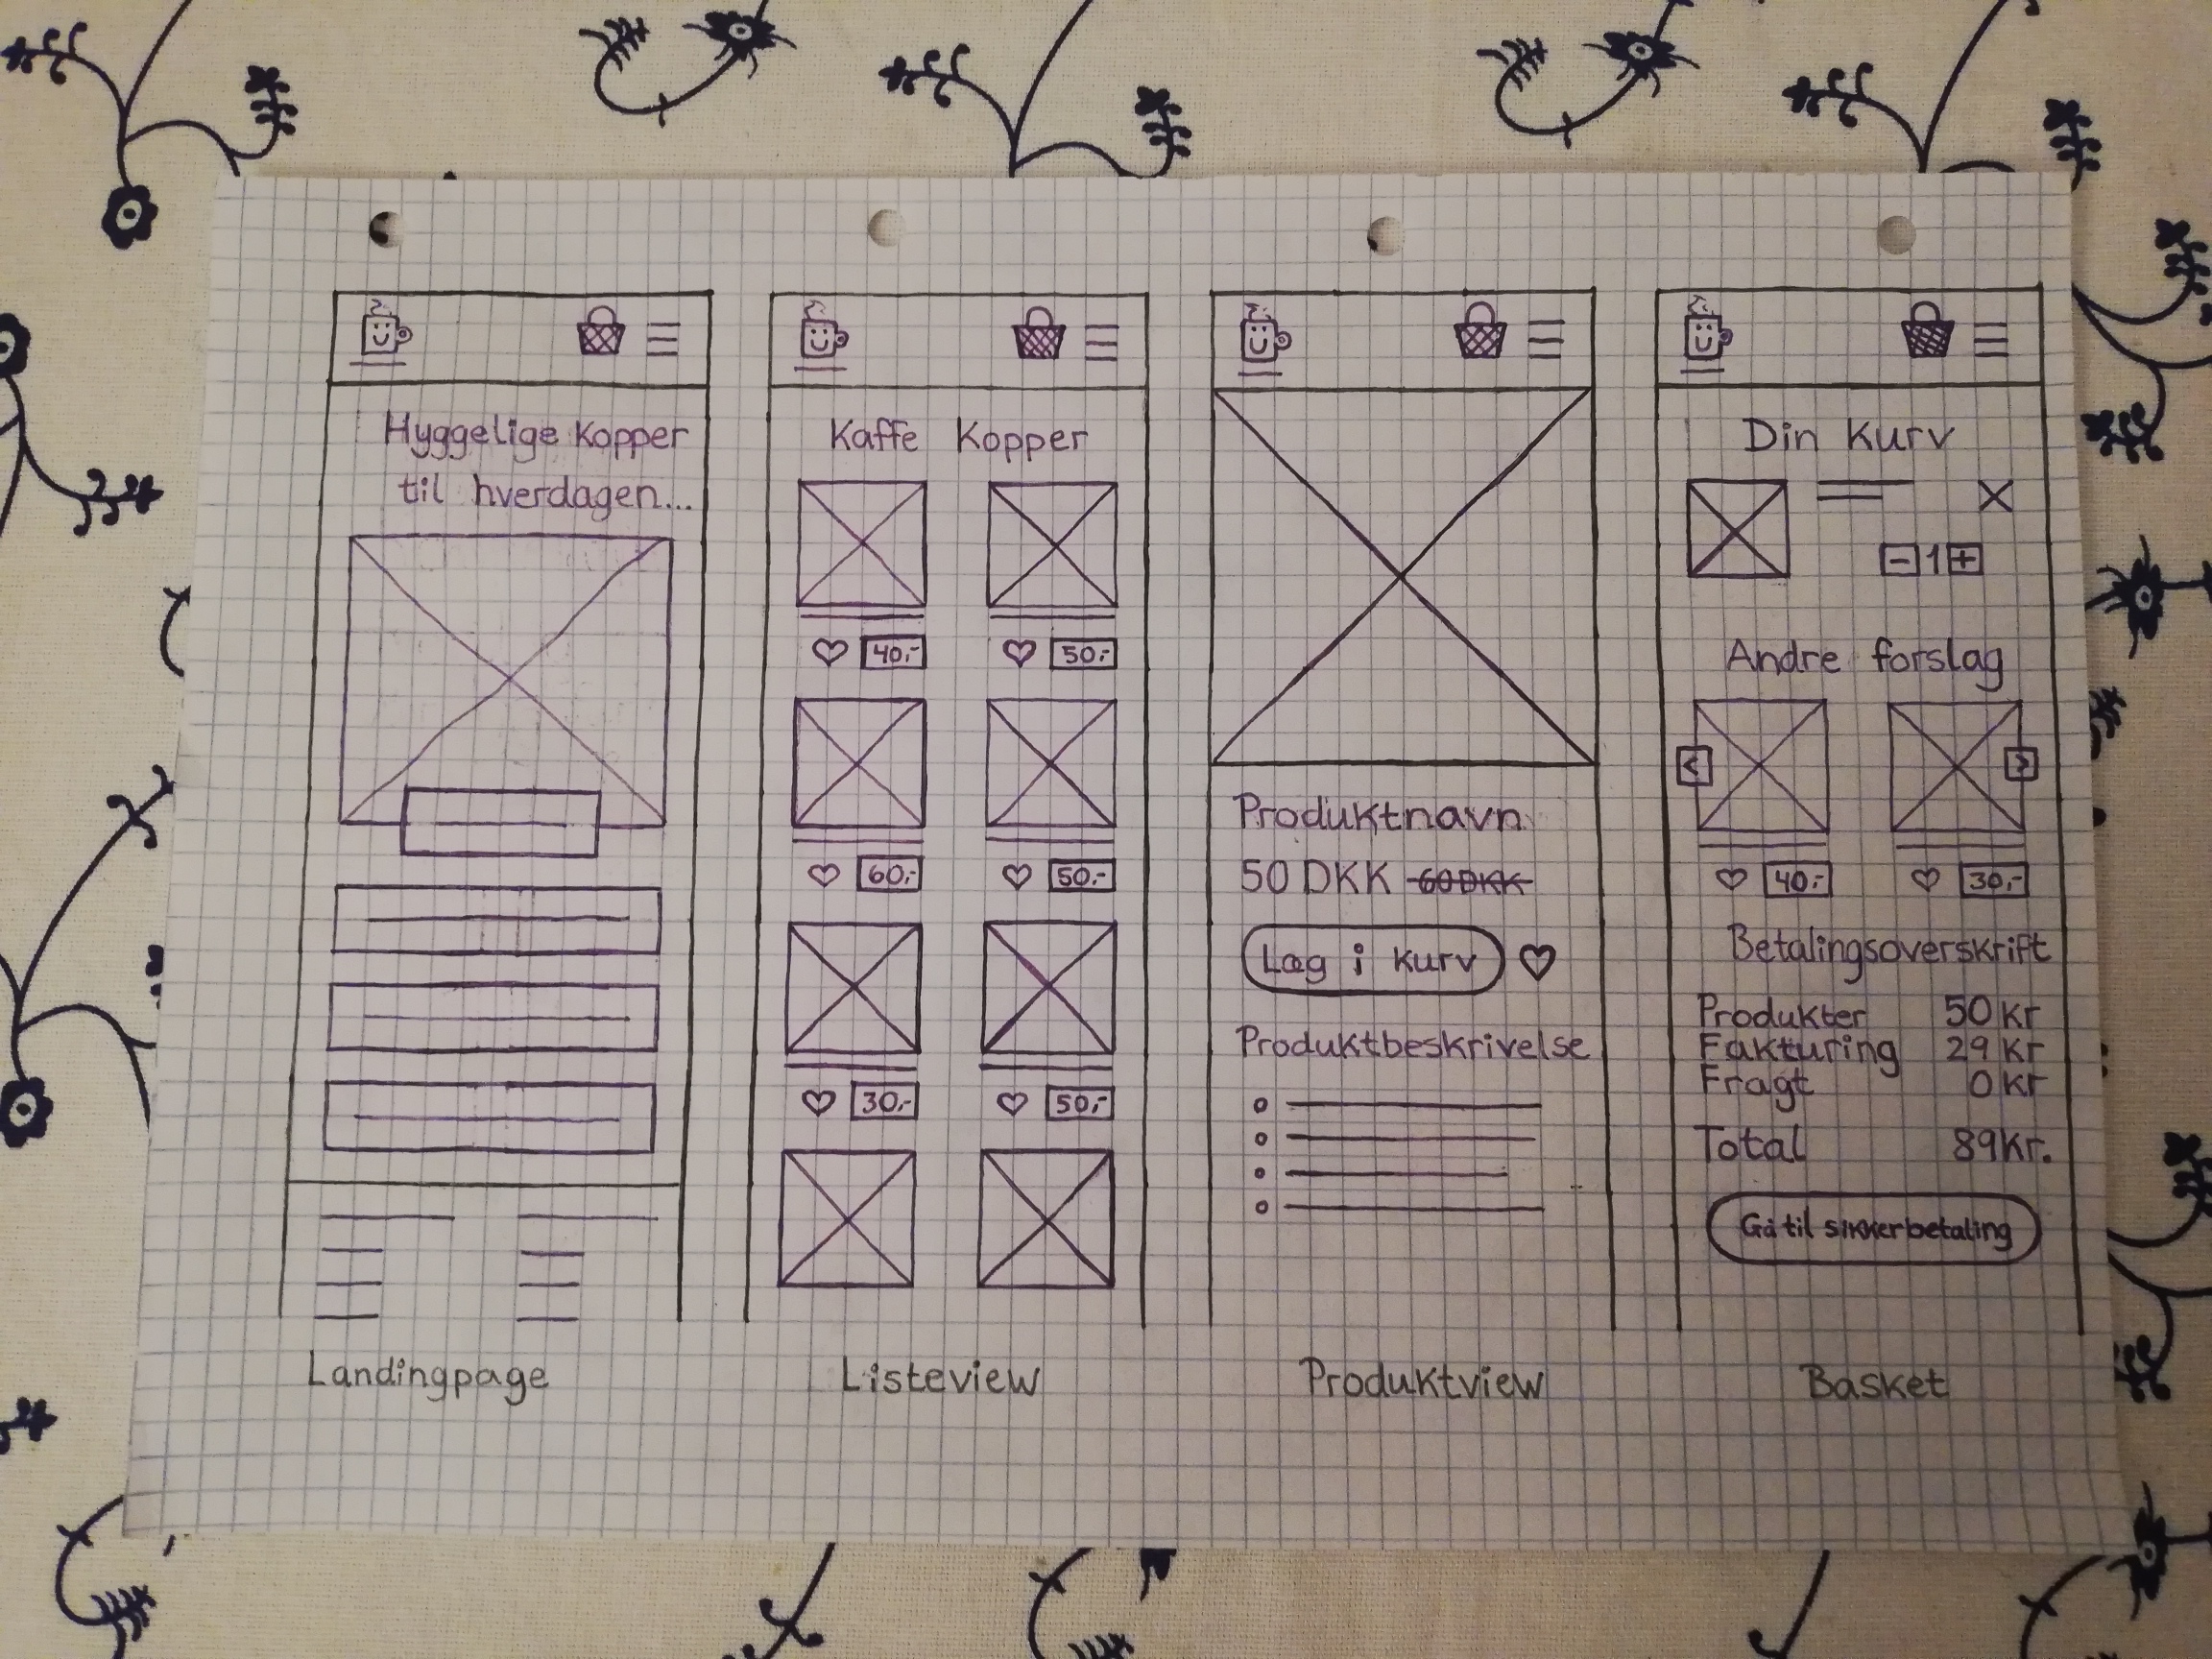 Hyggelige Kopper
til hverdagen...
Landingpage
Kaffe Kopper
40,- 50,-
60,- 50,-
30,- 50,-
Listeview
Produktnavn
50 DKK 60 DKK
Læg i kurv
Produktbeskrivelse
Produktview
Din Kurv
- 1 +
Andre forslag
< >
40,- 30,-
Betalingsoverskrift
Produkter 50 kr
Fakturing 29 kr
Fragt 0 kr
Total 89 Kr.
Gå til sikker betaling
Basket